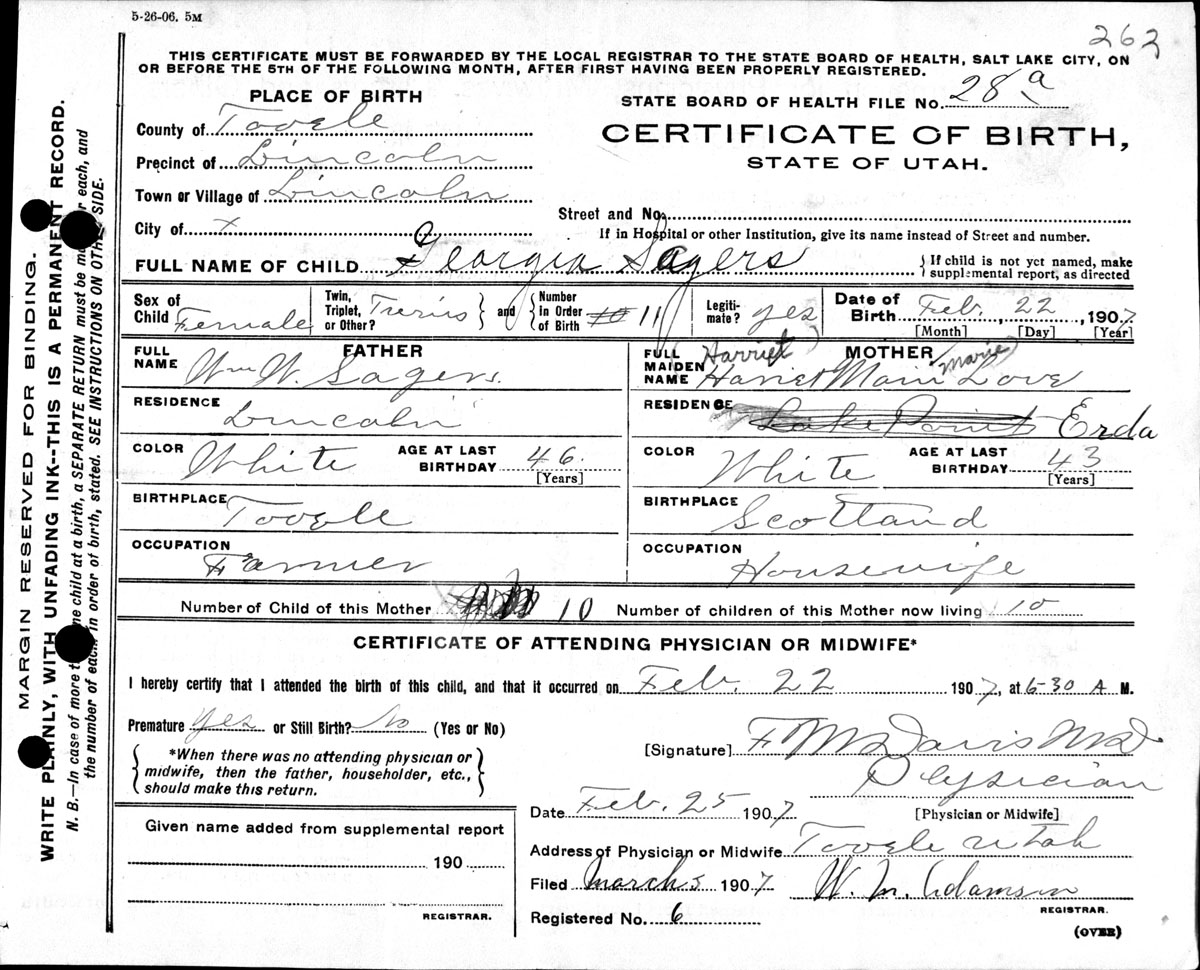 5-26-06. 5M
262
THIS CERTIFICATE MUST BE FORWARDED BY THE LOCAL REGISTRAR TO THE STATE BOARD OF HEALTH, SALT LAKE CITY, ON
OR BEFORE THE 5TH OF THE FOLLOWING MONTH, AFTER FIRST HAVING BEEN PROPERLY REGISTERED.
PLACE OF BIRTH
STATE BOARD OF HEALTH FILE No. 28 a
County of Tooele
CERTIFICATE OF BIRTH,
STATE OF UTAH.
Precinct of Lincoln
Town or Village of Lincoln
Street and No.
City of x
If in Hospital or other Institution, give its name instead of Street and number.
FULL NAME OF CHILD Georgia Sagers
{ If child is not yet named, make
supplemental report, as directed
Sex of Child Female
Twin, Triplet, or Other? Twins } and { Number In Order of Birth 11
Legitimate? yes
Date of Birth Feb. 22, 1907
[Month] [Day] [Year]
FATHER
FULL NAME Wm W. Sagers.
MOTHER
FULL MAIDEN NAME Harriet Marie
Hariet Main Love
RESIDENCE Lincoln
RESIDENCE Lake Point Erda
COLOR White AGE AT LAST BIRTHDAY 46. [Years]
COLOR White AGE AT LAST BIRTHDAY 43 [Years]
BIRTHPLACE Tooele
BIRTHPLACE Scotland
OCCUPATION Farmer
OCCUPATION Housewife
Number of Child of this Mother 10 Number of children of this Mother now living 10
CERTIFICATE OF ATTENDING PHYSICIAN OR MIDWIFE*
I hereby certify that I attended the birth of this child, and that it occurred on Feb. 22 1907, at 6-30 A M.
Premature yes or Still Birth? No (Yes or No)
{ *When there was no attending physician or
midwife, then the father, householder, etc.,
should make this return. }
[Signature] F M Davis MD
Physician
[Physician or Midwife]
Date Feb. 25 1907
Given name added from supplemental report
190
REGISTRAR.
Address of Physician or Midwife Tooele Utah
Filed March 5 1907 W. M. Adamson
REGISTRAR.
Registered No. 6
(OVER)
MARGIN RESERVED FOR BINDING.
WRITE PLAINLY, WITH UNFADING INK--THIS IS A PERMANENT RECORD.
N. B.—In case of more than one child at a birth, a SEPARATE RETURN must be made for each, and
the number of each, in order of birth, stated. SEE INSTRUCTIONS ON OTHER SIDE.